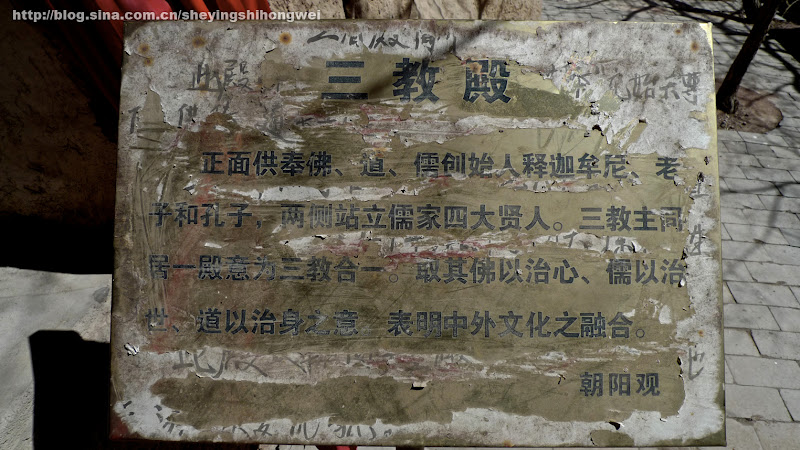 http://blog.sina.com.cn/sheyingshihongwei
三教殿
此殿
正面供奉佛、道、儒创始人释迦牟尼、老
子和孔子，两侧站立儒家四大贤人。三教主同
居一殿意为三教合一。取其佛以治心、儒以治
世、道以治身之意，表明中外文化之融合。
此殿
朝阳观